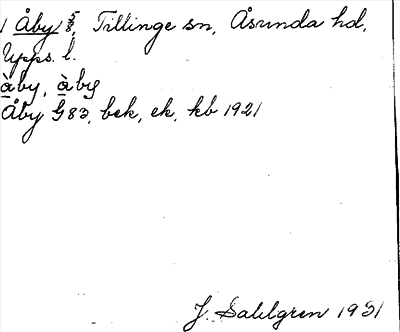 1 Åby 5/8, Tillinge sn, Åsunda hd,
Upps. l.
àby, àby
Åby G83, bek, ek, kb 1921
J. Sahlgren 1931